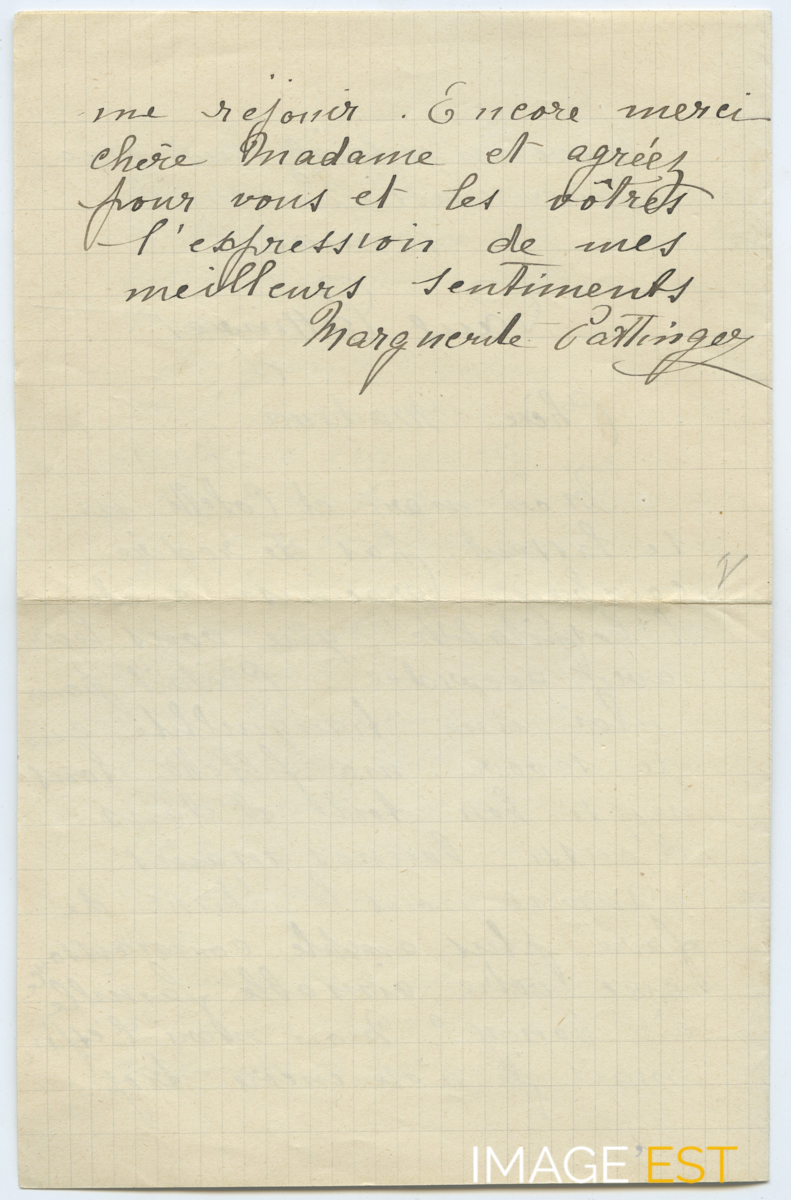 me réjouir. Encore merci
chère Madame et agréez
pour vous et les vôtres
l'expression de mes
meilleurs sentiments
Marguerite
IMAGE'EST